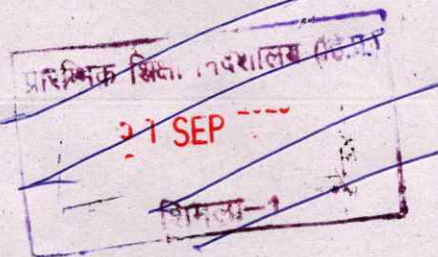 प्रारम्भिक शिक्षा निदेशालय (हि.प्र.)
21 SEP
शिमला-1